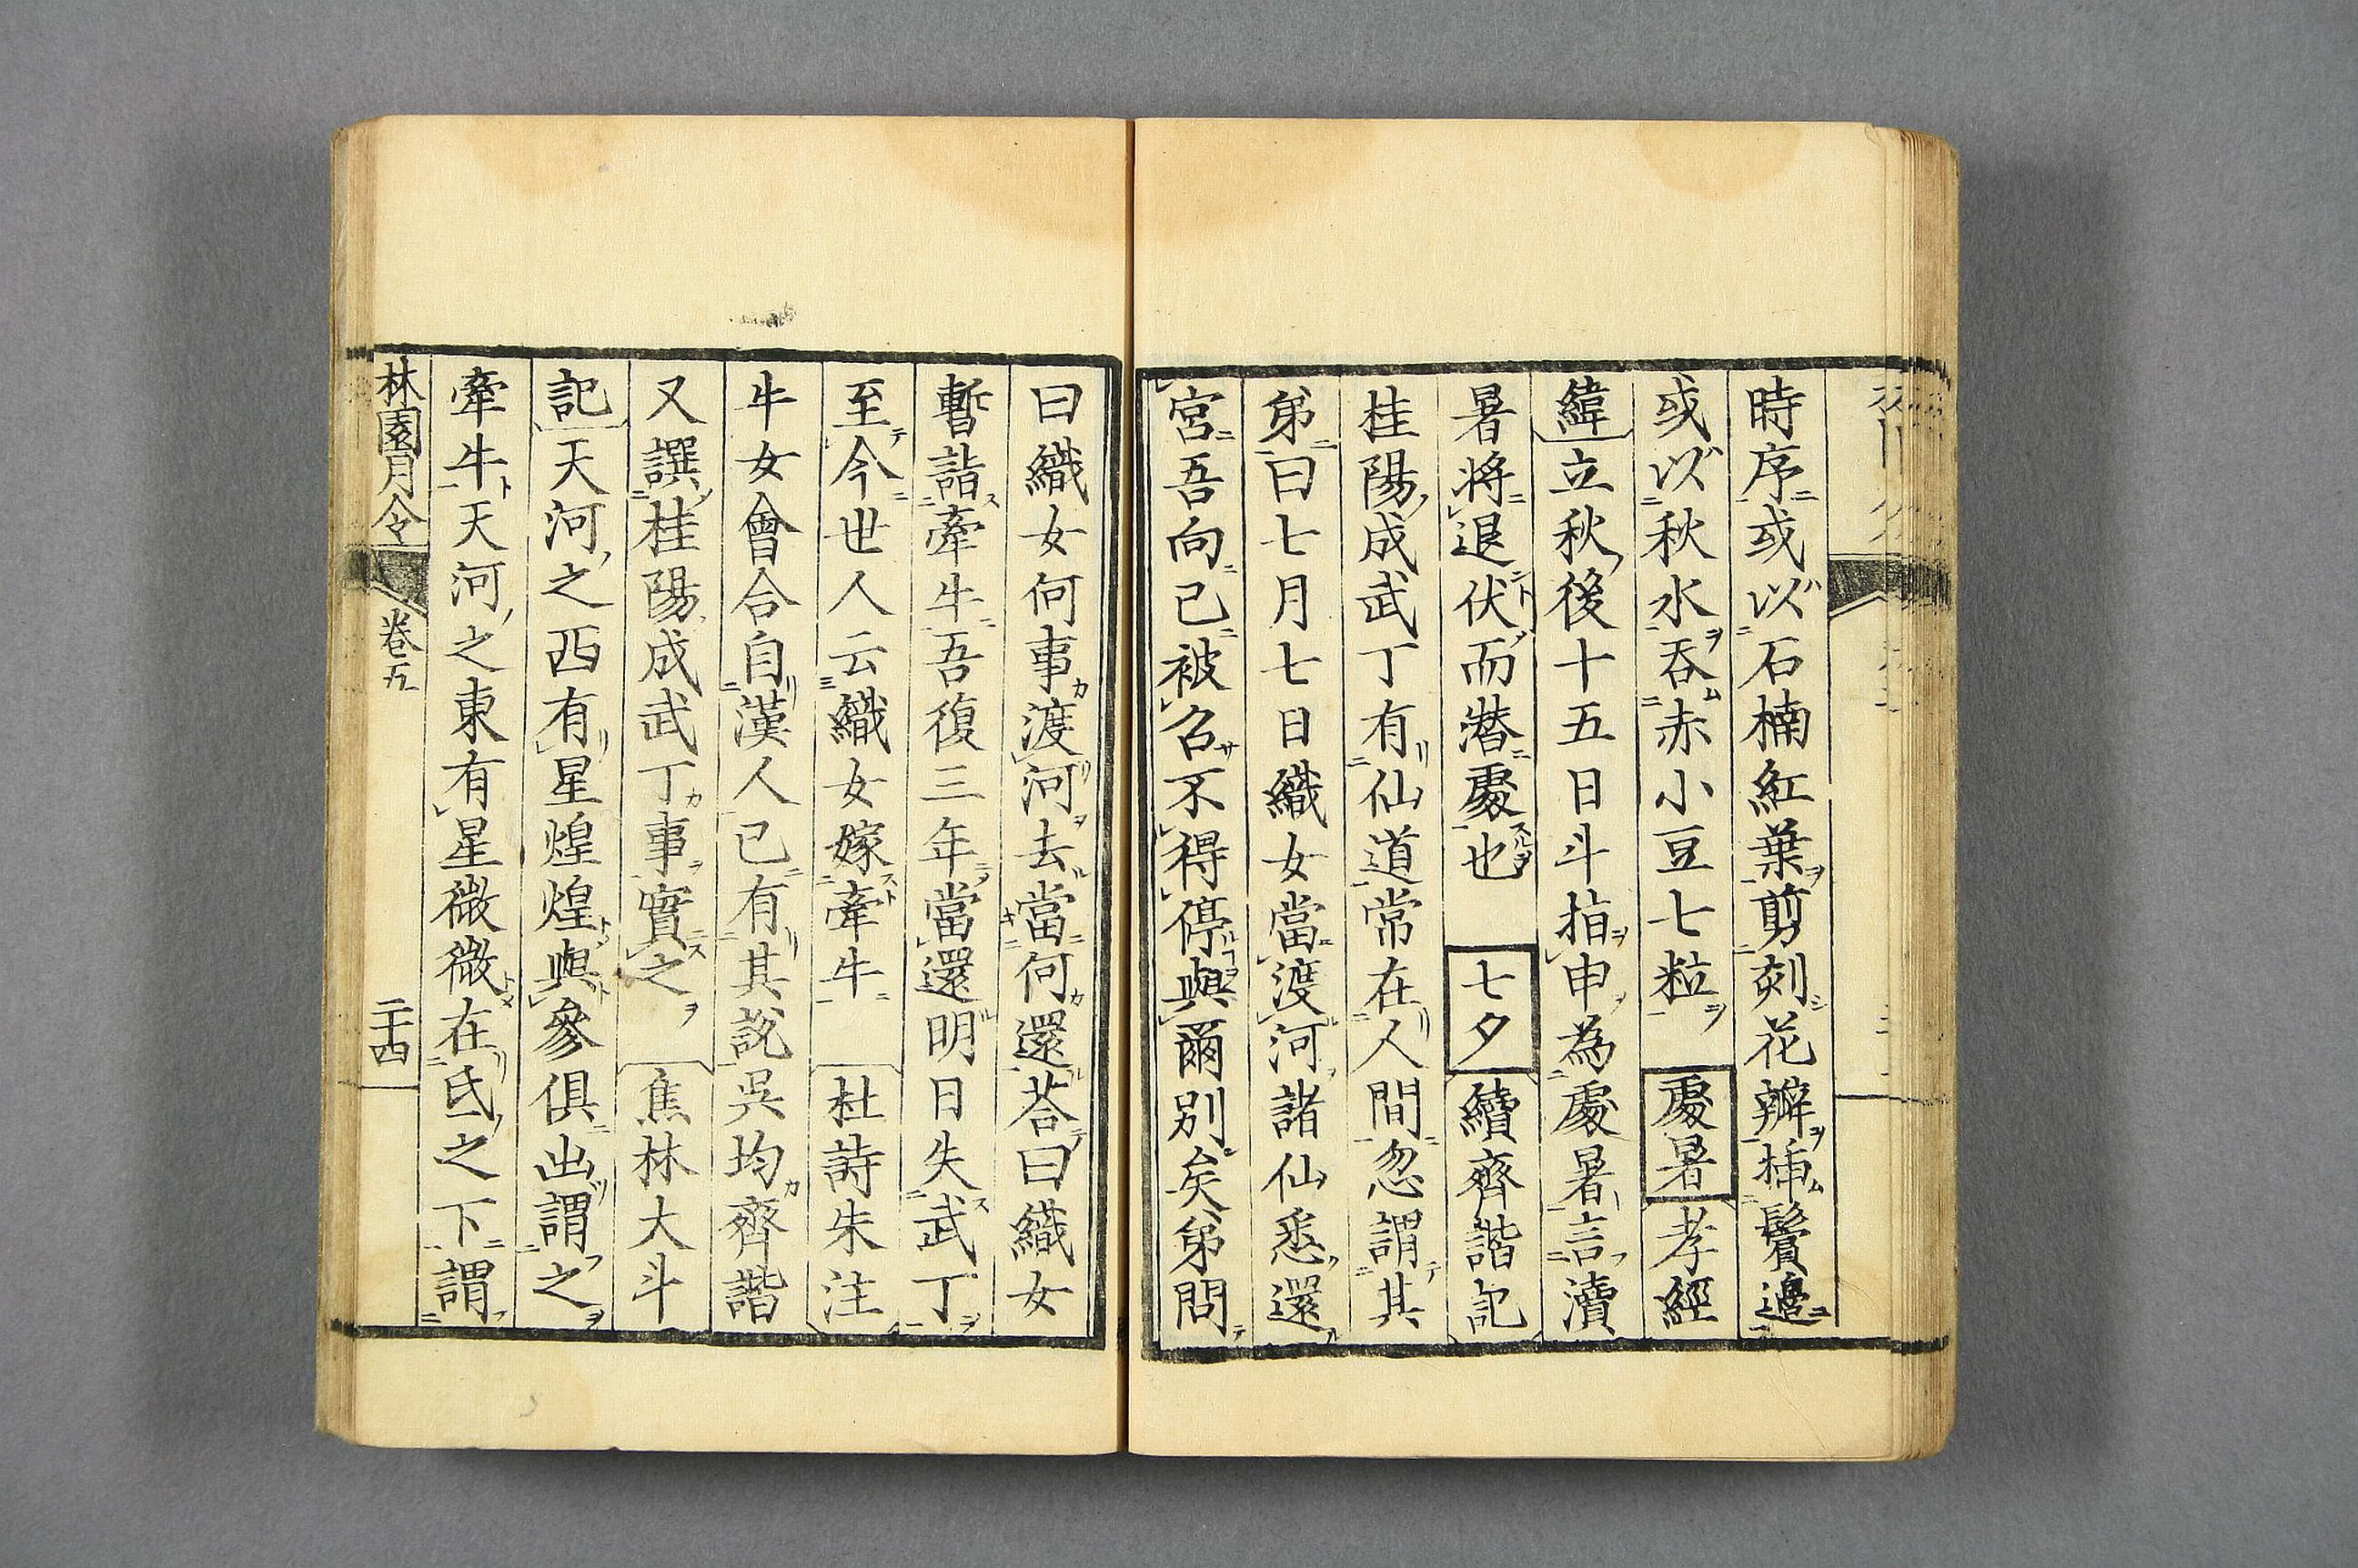 時序或以石楠紅葉剪刻花瓣插鬢邊
或以秋水吞赤小豆七粒 處暑 孝經
緯立秋後十五日斗指申為處暑言瀆
暑將退伏而潛處也 七夕 續齊諧記
桂陽成武丁有仙道常在人間忽謂其
弟曰七月七日織女當渡河諸仙悉還
宮吾向已被召不得停與爾別矣弟問
曰織女何事渡河去當何還荅曰織女
暫詣牽牛吾復三年當還明日失武丁
至今世人云織女嫁牽牛 杜詩朱注
牛女會合自漢人已有其說吳均齊諧
又譔桂陽成武丁事實之 焦林大斗
記天河之西有星煌煌與參俱出謂之
牽牛天河之東有星微微在氐之下謂
林園月令 卷五 二十四